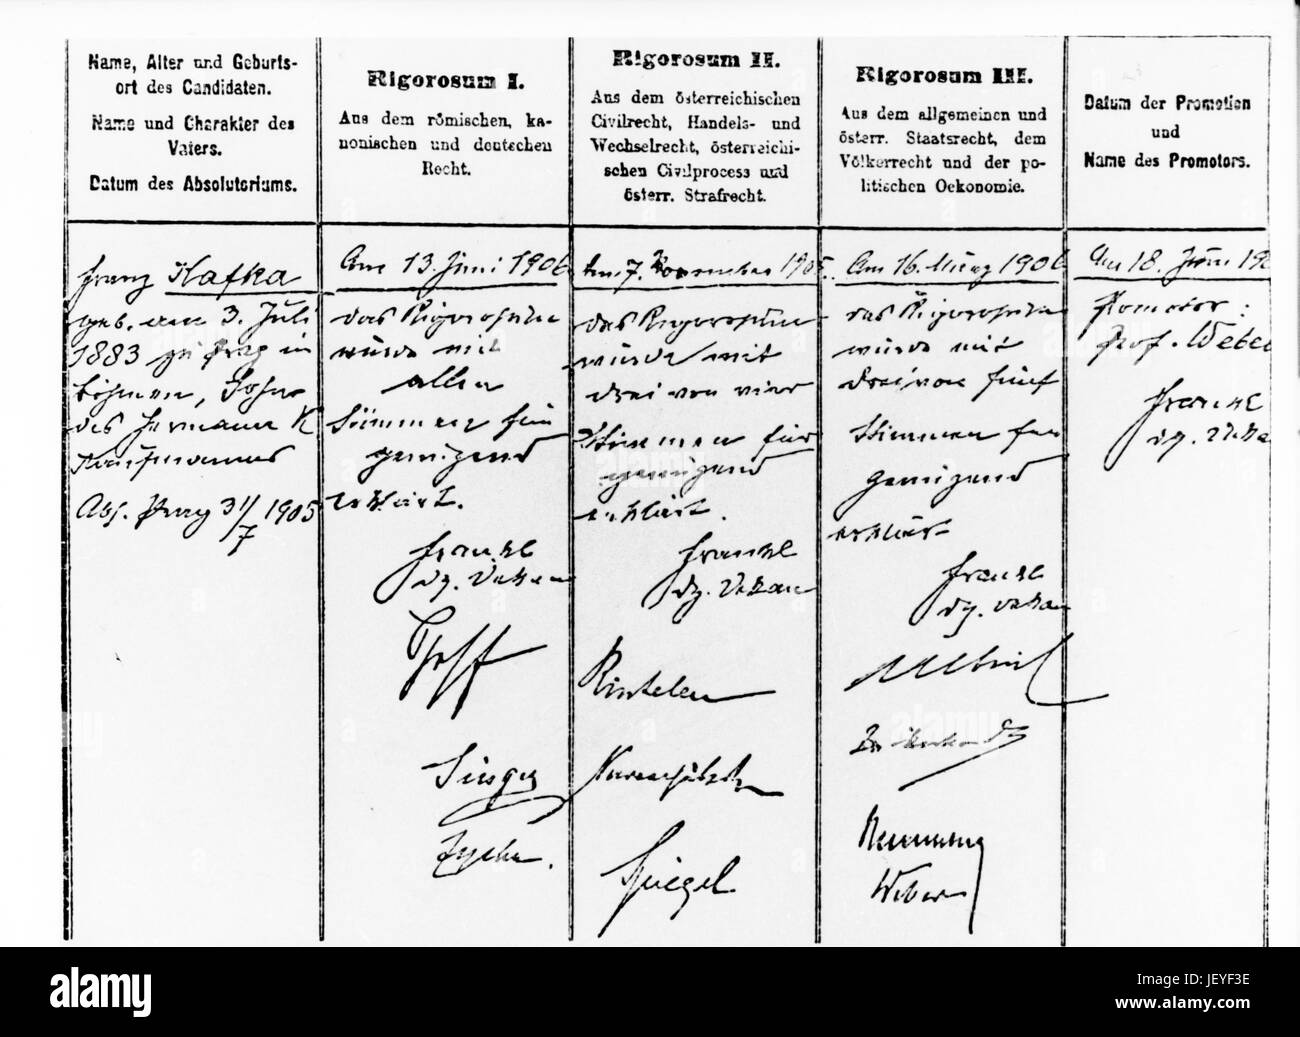 Name, Alter und Geburts-
ort des Candidaten.
Name und Charakter des
Vaters.
Datum des Absolutoriums.
Franz Kafka
geb. am 3. Juli
1883 zu Prag in
Böhmen, Sohn
des Hermann K
Kaufmannes
Abs. Prag 31/7 1905
Rigorosum I.
Aus dem römischen, ka-
nonischen und deutschen
Recht.
Am 13. Juni 1906
das Rigorosum
wurde mit
allen
Stimmen für
genügend
erklärt.
Frankl
dz. Dekan
Singer
Rigorosum II.
Aus dem österreichischen
Civilrecht, Handels- und
Wechselrecht, österreichi-
schen Civilprocess und
österr. Strafrecht.
Am 7. November 1905.
das Rigorosum
wurde mit
drei von vier
Stimmen für
genügend
erklärt.
Frankl
dz. Dekan
Rintelen
Spiegel
Rigorosum III.
Aus dem allgemeinen und
österr. Staatsrecht, dem
Völkerrecht und der po-
litischen Oekonomie.
Am 16. März 1906
das Rigorosum
wurde mit
drei von fünf
Stimmen für
genügend
erklärt
Frankl
dz. Dekan
Weber
Datum der Promotion
und
Name des Promotors.
Am 18. Juni 190
Promotor:
Prof. Weber
Frankl
dz. Deka
alamy
Image ID: JEYF3E
www.alamy.com